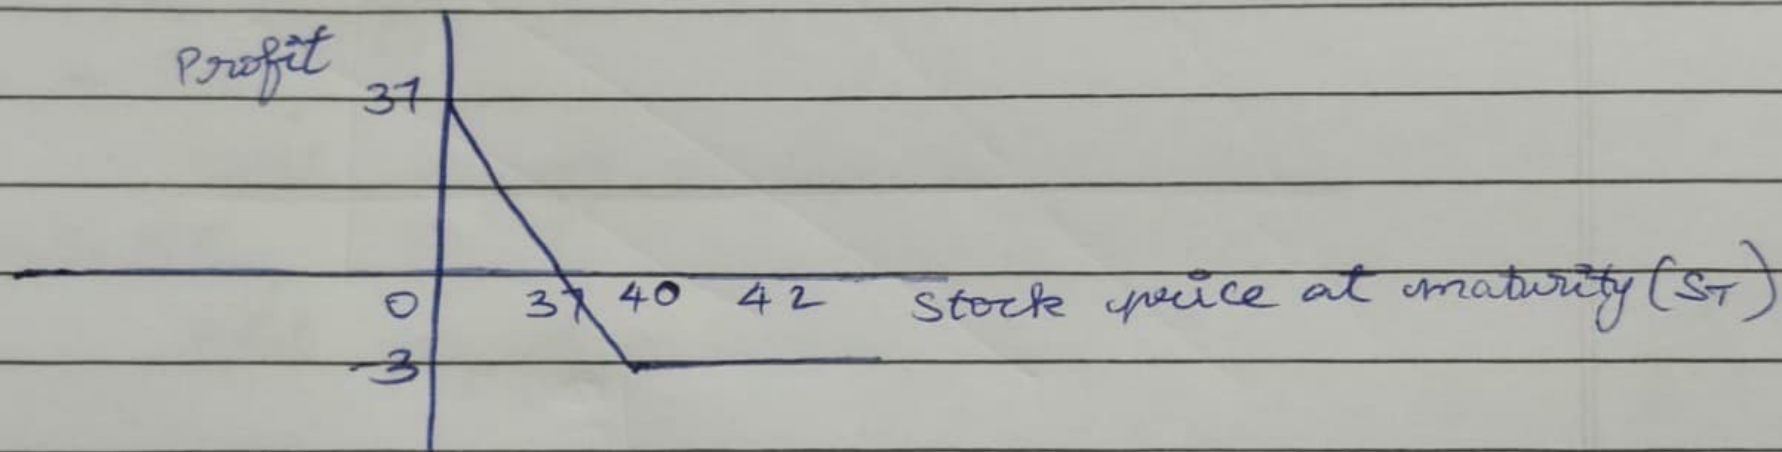 Profit
37
0 37 40 42 Stock price at maturity (ST)
-3